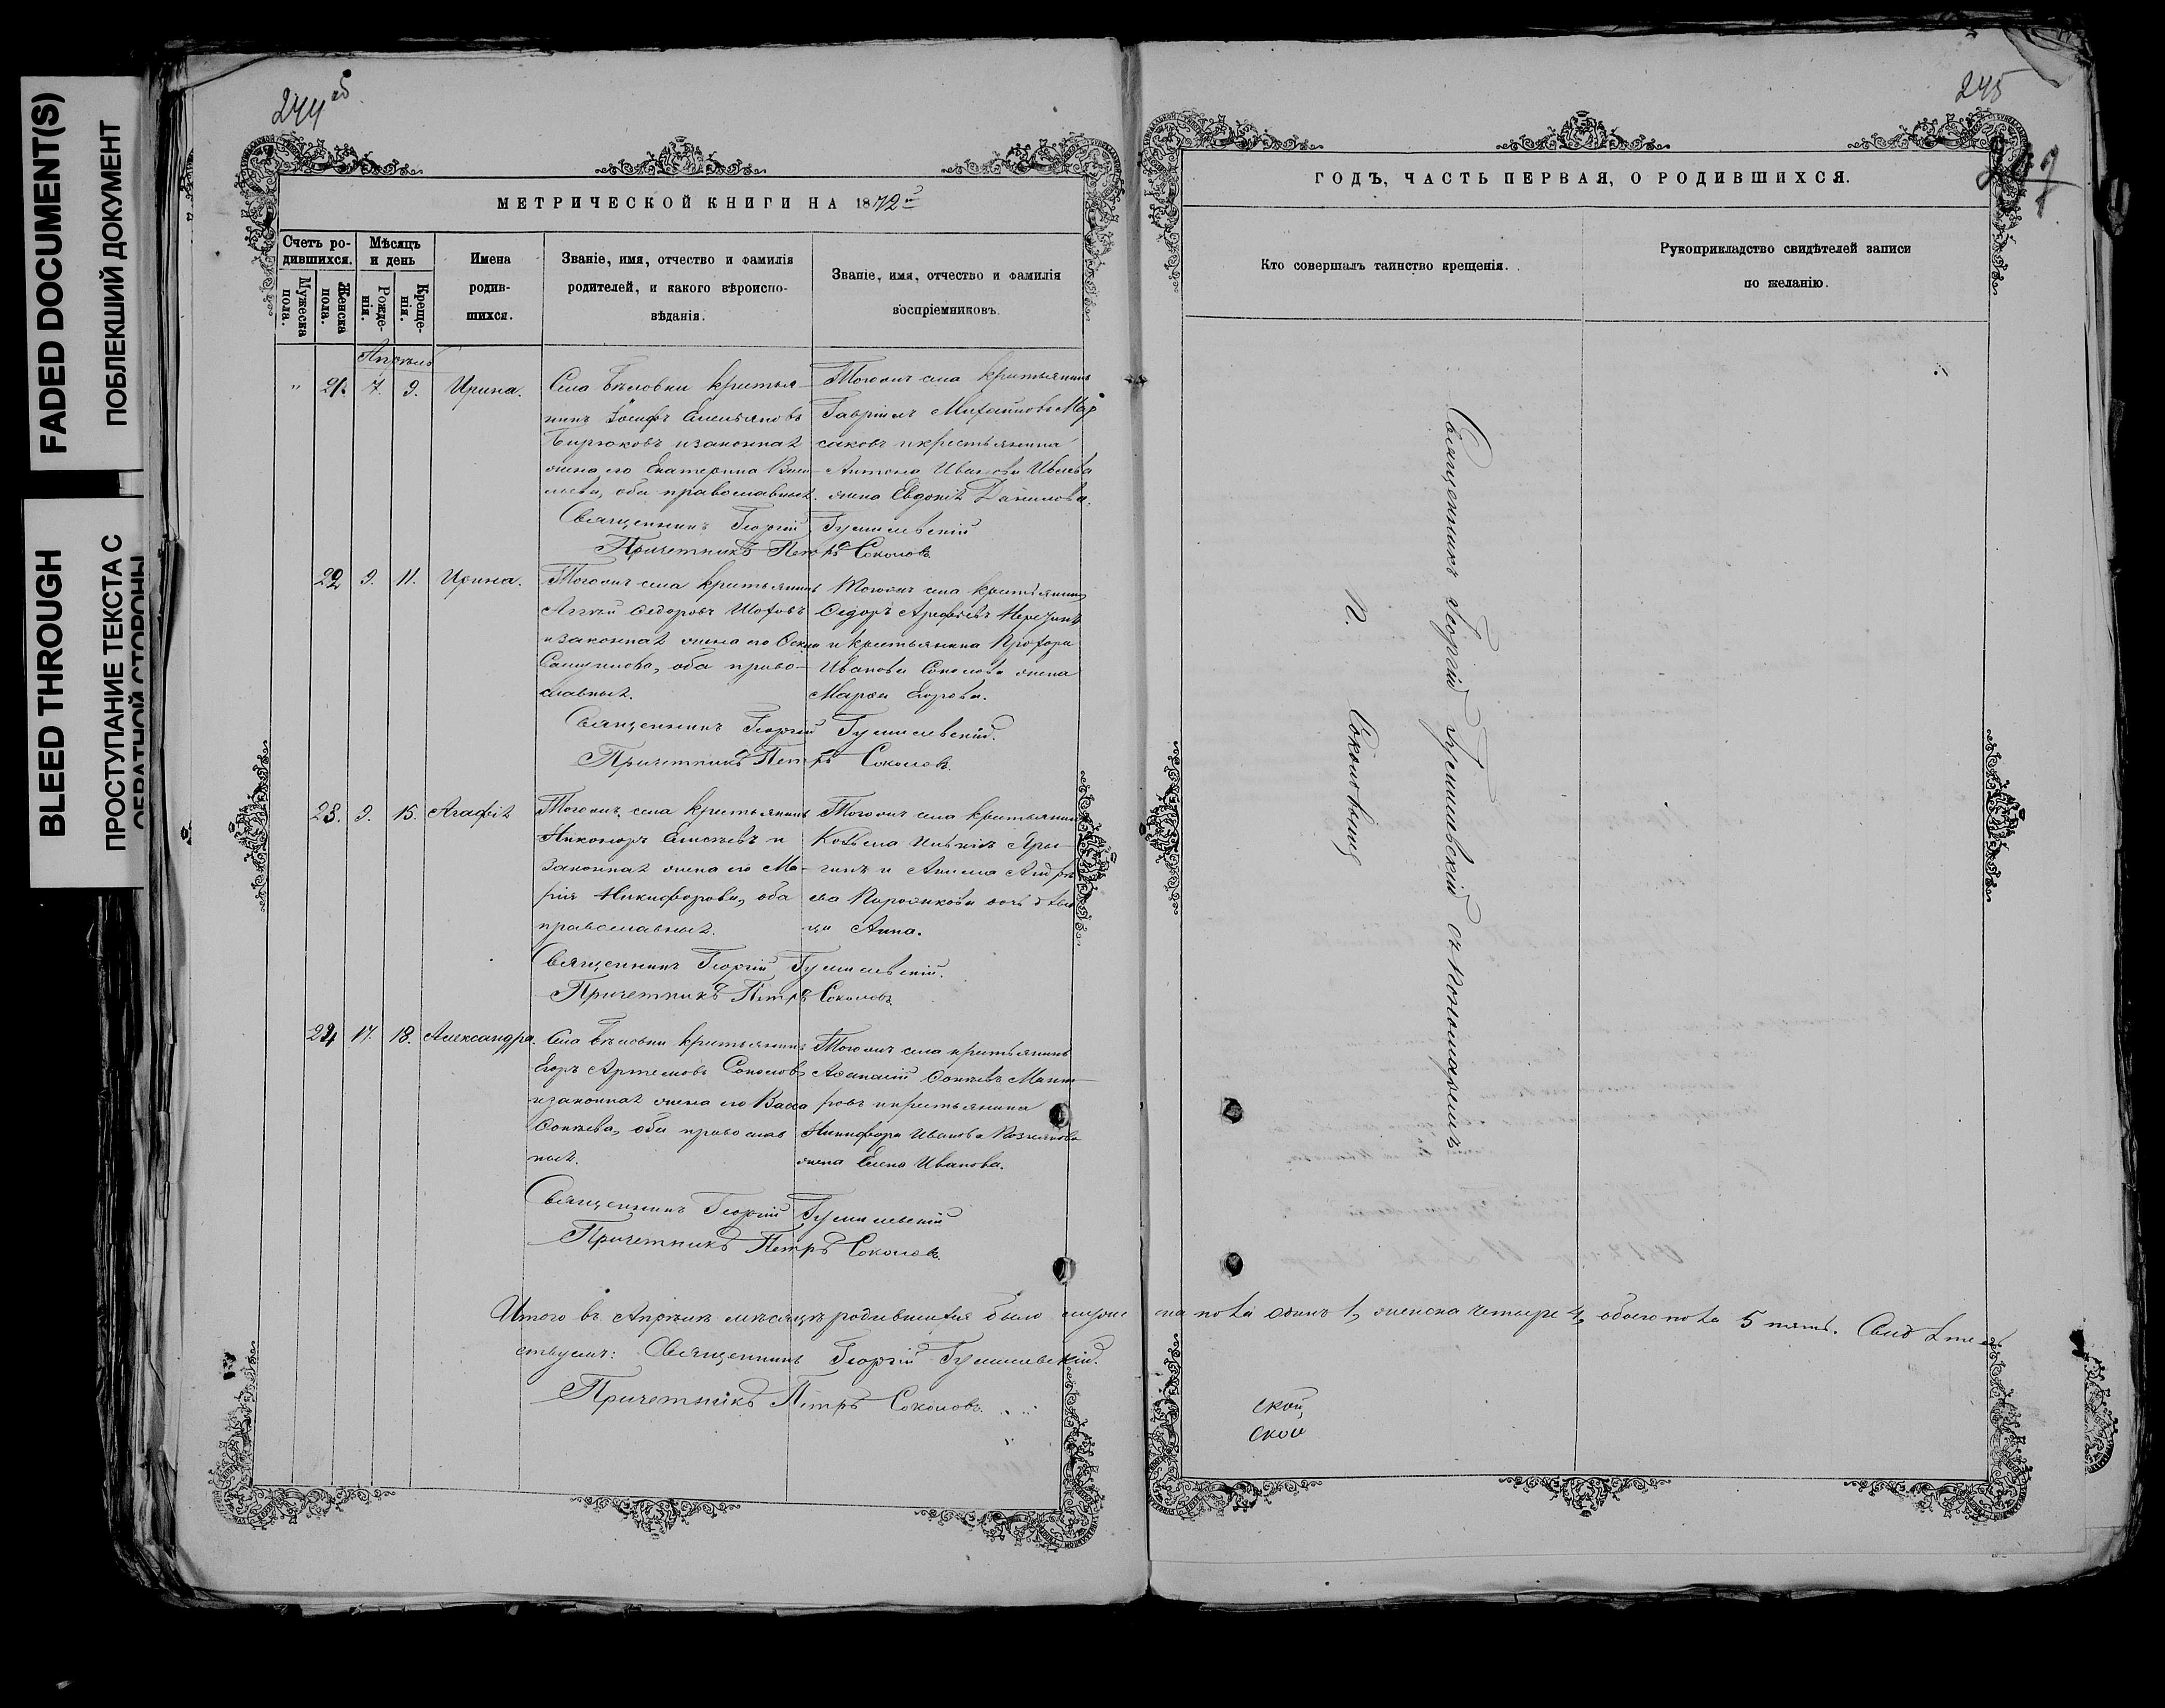 FADED DOCUMENT(S)
ПОБЛЕКШИЙ ДОКУМЕНТ
BLEED THROUGH
ПРОСТУПАНИЕ ТЕКСТА С
ОБРАТНОЙ СТОРОНЫ
244 об
МЕТРИЧЕСКОЙ КНИГИ НА 1872й
Счетъ ро-
дившихся.
Мужеска
пола.
Женска
пола.
Мѣсяцъ
и день
Рожде-
нія.
Креще-
нія.
Имена
родив-
шихся.
Званіе, имя, отчество и фамилія
родителей, и какого вѣроиспо-
вѣданія.
Званіе, имя, отчество и фамилія
воспріемниковъ.
Апрѣль
" 21. 7. 9. Ирина.
Села Бѣловки крестья-
нинъ Іосифъ Емельяновъ
Бирюковъ и законная
жена его Екатерина Васи-
льева, оба православные.
Тогоже села крестьянинъ
Гавріилъ Михайловъ Мар
саковъ и крестьянина
Антона Иванова Ивлева
жена Евдокія Данилова.
Священникъ Георгій Гумилевскій
Причетникъ Петръ Соколовъ
22 9. 11. Ирина.
Тогоже села крестьянинъ
Аггѣй Ѳедоровъ Шоховъ
и законная жена его
Самуилова, оба право-
славные.
Тогоже села крестьянинъ
Ѳедоръ Арефьевъ
и крестьянина Прохора
Иванова Соколова жена
Марѳа Егорова.
Священникъ Георгій Гумилевскій.
Причетникъ Петръ Соколовъ.
23. 9. 15. Агафія
Тогоже села крестьянинъ
Никоноръ Елисѣевъ и
законная жена его Ма-
рія Никифорова, оба
православные.
Тогоже села крестьянинъ
Козьма
гинъ и
дочь дѣви
ца Анна.
Священникъ Георгій Гумилевскій.
Причетникъ Петръ Соколовъ.
24 17. 18. Александра.
Села Бѣловки крестьянинъ
Егоръ Артемовъ Соколовъ
и законная жена его Васса
Ѳокѣева, оба православ
ные.
Тогоже села крестьянинъ
Аѳанасій Ѳокѣевъ
ровъ и крестьянина
Никифора Иванова Познякова
жена Елена Иванова.
Священникъ Георгій Гумилевскій
Причетникъ Петръ Соколовъ.
Итого въ Апрѣлѣ мѣсяцѣ родившихся было муже
ска пола одинъ 1, женска четыре 4, обоего пола 5 пять. Свидѣтель
ствуемъ: Священникъ Георгій Гумилевскій.
Причетникъ Петръ Соколовъ.
245
ГОДЪ, ЧАСТЬ ПЕРВАЯ, О РОДИВШИХСЯ.
Кто совершалъ таинство крещенія.
Рукоприкладство свидѣтелей записи
по желанію.
Священникъ Георгій Гумилевскій съ Пономаремъ
П. Соколовымъ
ской
ской